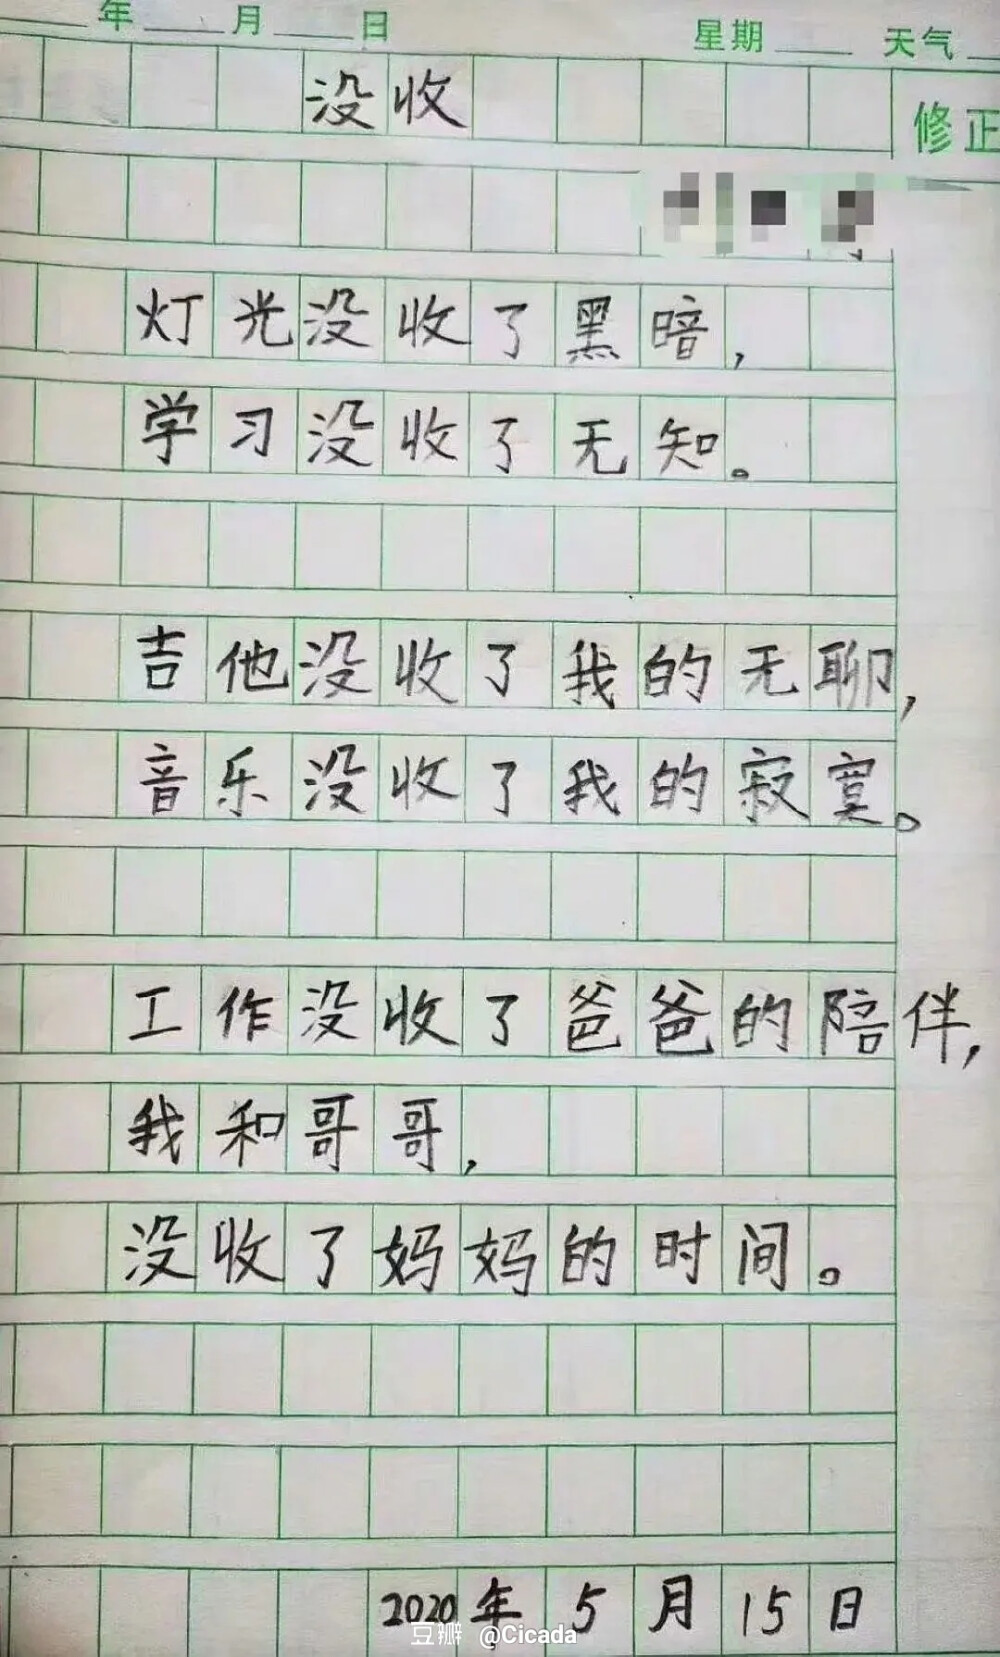 年 月 日 星期 天气
没收
修正
灯光没收了黑暗，
学习没收了无知。
吉他没收了我的无聊，
音乐没收了我的寂寞。
工作没收了爸爸的陪伴，
我和哥哥，
没收了妈妈的时间。
2020年5月15日
豆瓣 @Cicada